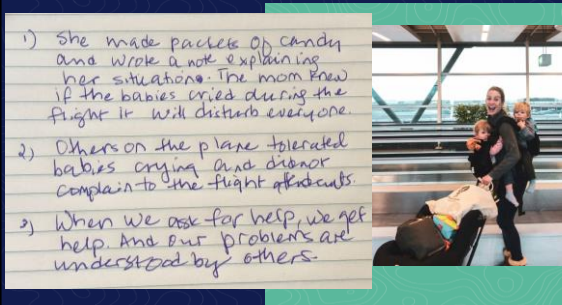 1) She made packets of candy
and wrote a note explaining
her situation. The mom knew
if the babies cried during the
flight it will disturb everyone.
2) Others on the plane tolerated
babies crying and didnot
complain to the flight attendants.
3) When we ask for help, we get
help. And our problems are
understood by others.